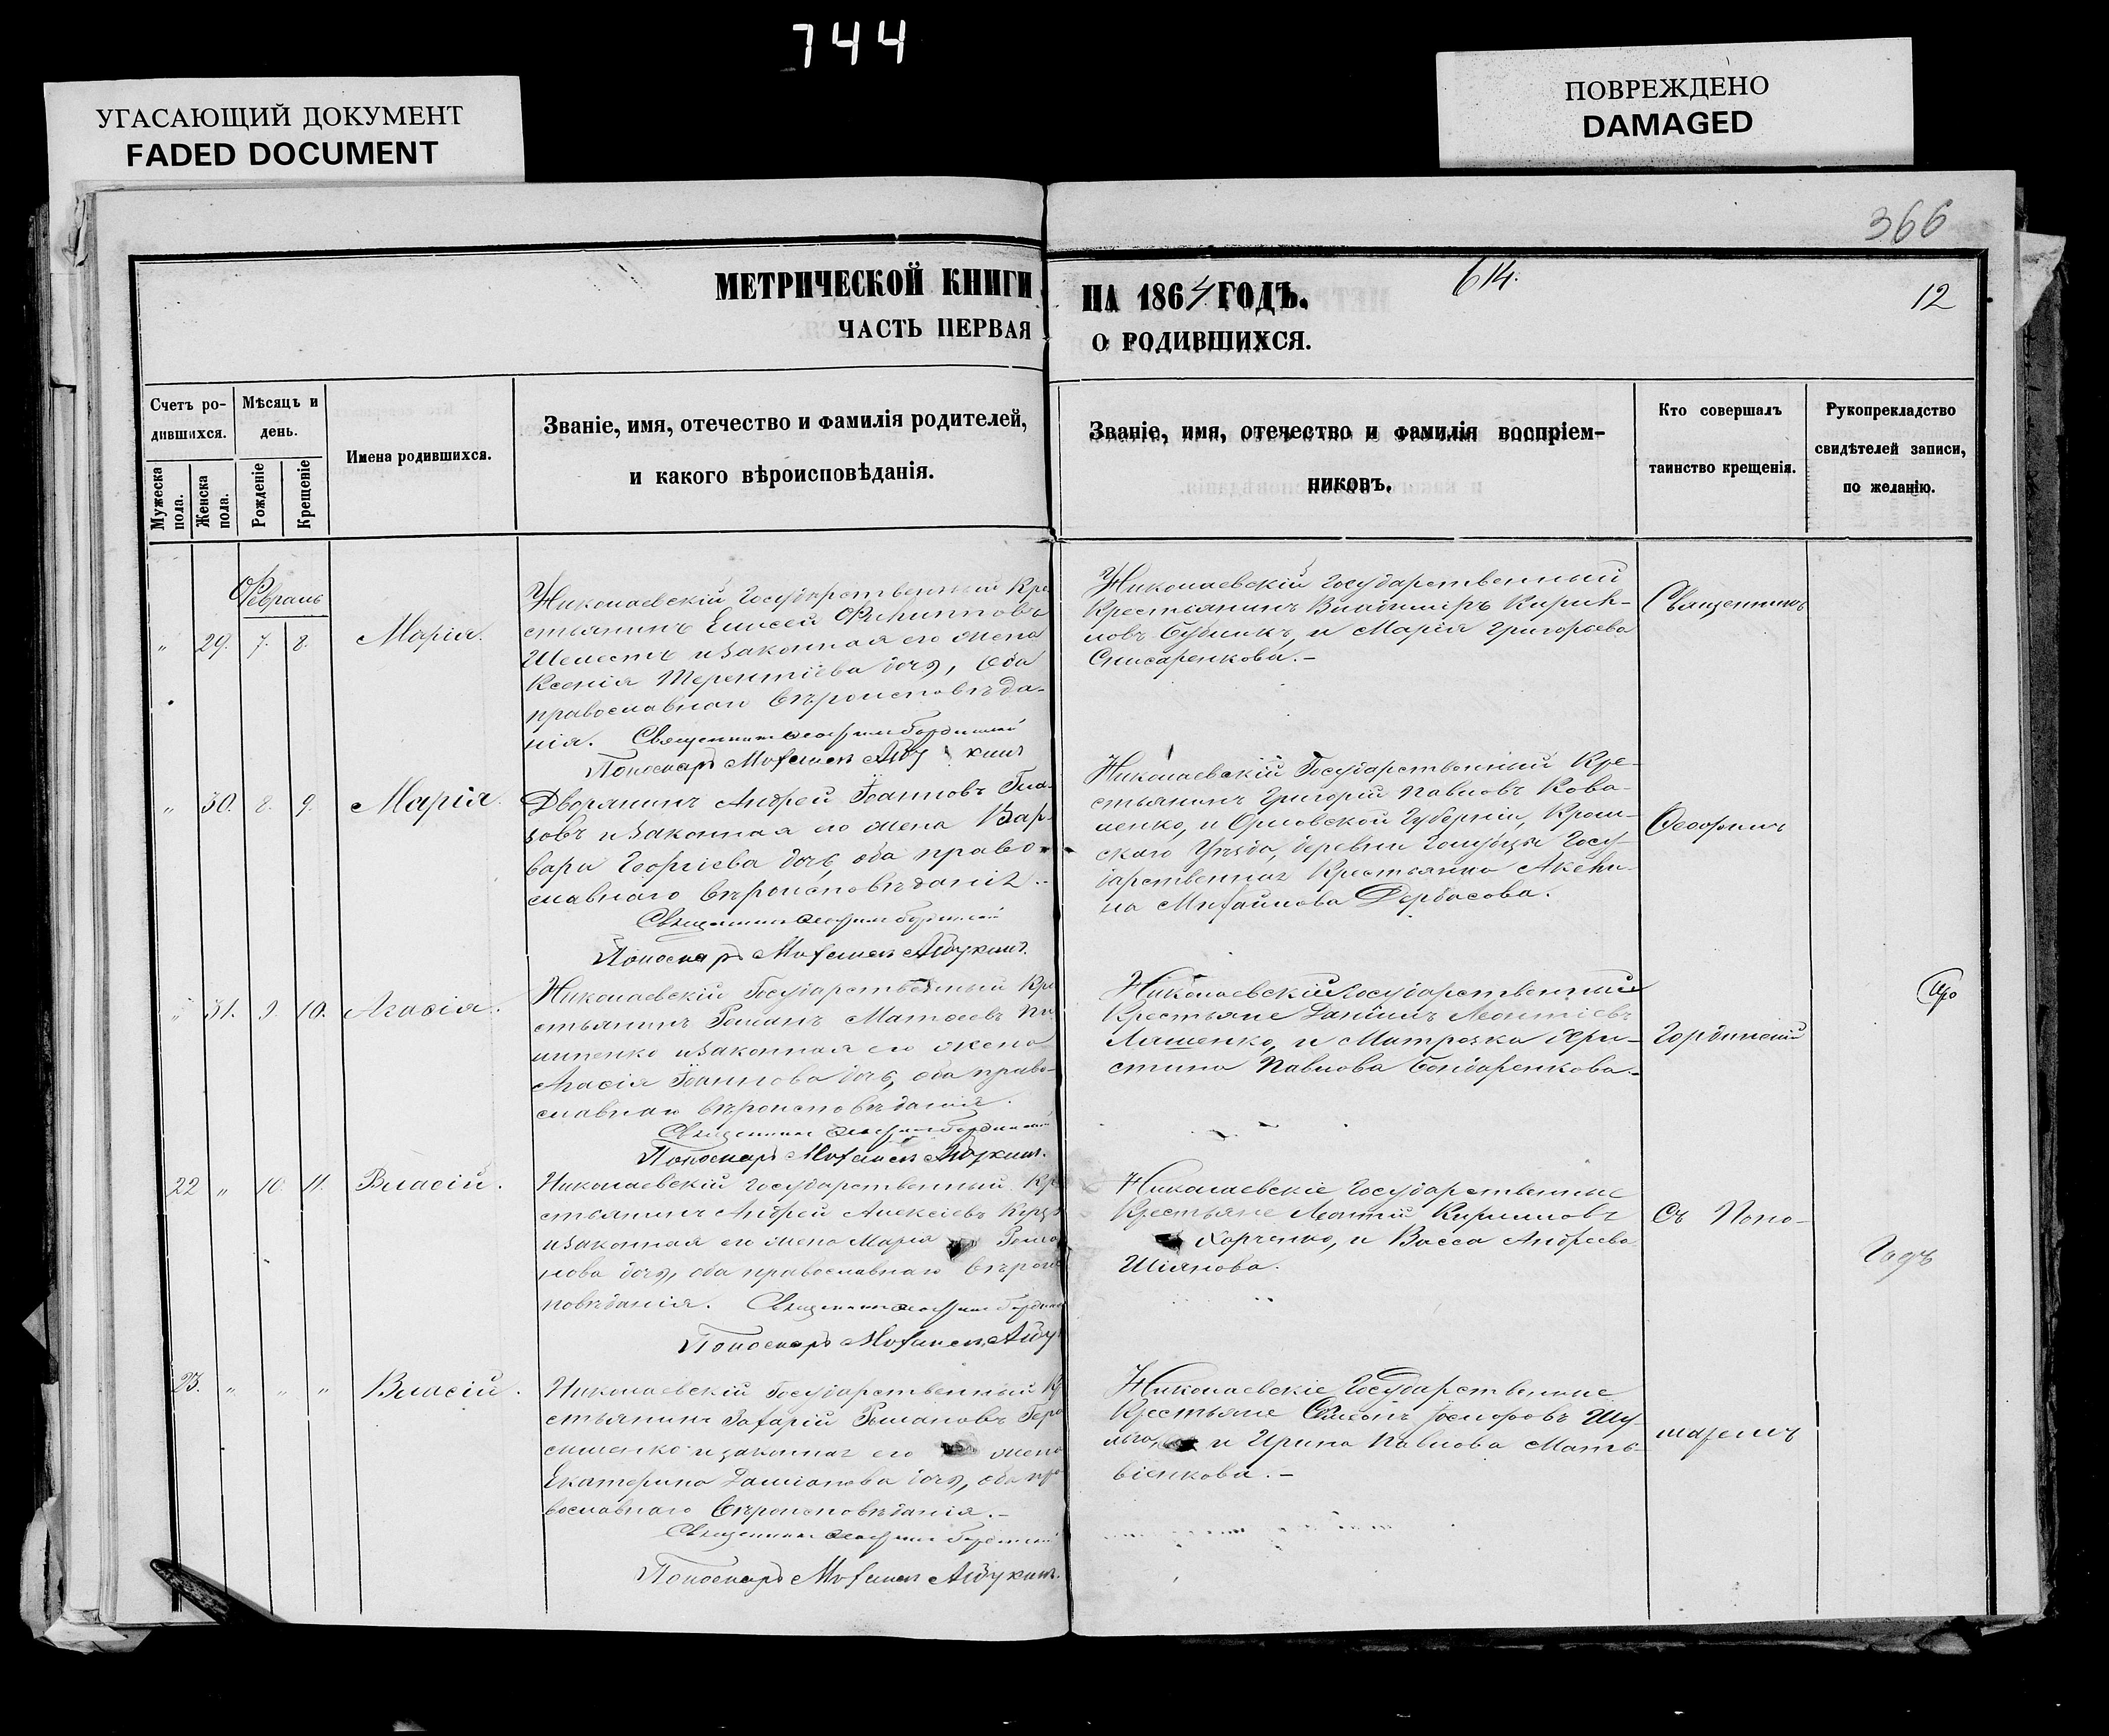 744
УГАСАЮЩИЙ ДОКУМЕНТ
FADED DOCUMENT
ПОВРЕЖДЕНО
DAMAGED
366
МЕТРИЧЕСКОЙ КНИГИ
ЧАСТЬ ПЕРВАЯ
НА 1864 ГОДЪ.
614.
12
О РОДИВШИХСЯ.
Счетъ ро-
дившихся.
Мужеска пола.
Женска пола.
Мѣсяцъ и
день.
Рожденіе
Крещеніе
Имена родившихся.
Званіе, имя, отечество и фамилія родителей,
и какого вѣроисповѣданія.
Званіе, имя, отечество и фамилія воспріем-
никовъ.
Кто совершалъ
таинство крещенія.
Рукоприкладство
свидѣтелей записи,
по желанію.
Февраль
" 29. 7. 8. Марія.
Николаевскій Государственный Кре
стьянинъ Елисей Филипповъ
Шелестъ и законная его жена
Ксенія Терентіева дочь, оба
православнаго вѣроисповѣда-
нія. Священникъ
Пономарь
Николаевскій Государственный
Крестьянинъ Владиміръ Кирил-
ловъ и Марія Григорьева
Слисаренкова.-
Священникъ
" 30. 8. 9. Марія.
Дворянинъ Андрей Іоанновъ Гла-
зовъ и законная его жена Вар-
вара Георгіева дочь, оба право-
славнаго вѣроисповѣданія.-
Священникъ
Пономарь
Николаевскій Государственный Кре-
стьянинъ Григорій Павловъ Кова-
ленко, и Орловской Губерніи, Кром-
скаго Уѣзда, деревни Госу-
дарственная Крестьянка
Михайлова Дербасова.
" 31. 9. 10. Агафія.
Николаевскій Государственный Кре
стьянинъ Романъ Матѳеевъ Пи-
липенко и законная его жена
Агафія Іоаннова дочь, оба право-
славнаго вѣроисповѣданія.
Священникъ
Пономарь
Николаевскій Государственный
Крестьяне Даніилъ Леонтіевъ
Ляшенко, и Матрозка Хри-
стина Павлова Бондаренкова.-
Гординскій
22 " 10. 11. Власій.
Николаевскій Государственный Кре
стьянинъ Андрей Алексіевъ
и законная его жена Марія Рома
нова дочь, оба православнаго вѣроис
повѣданія. Священникъ
Пономарь
Николаевскіе Государственные
Крестьяне Леонтій Кирилловъ
Харченко, и Васса Андреева
Шіянова.
Съ Поно-
23. " " " Власій.
Николаевскій Государственный Кр
стьянинъ Захарій Романовъ Гера
сименко и законная его жена
Екатерина Даміанова дочь, оба пра
вославнаго вѣроисповѣданія.-
Священникъ
Пономарь
Николаевскіе Государственные
Крестьяне Симеонъ Шу-
льга, и Ирина Павлова Матв-
віенкова.-
маремъ